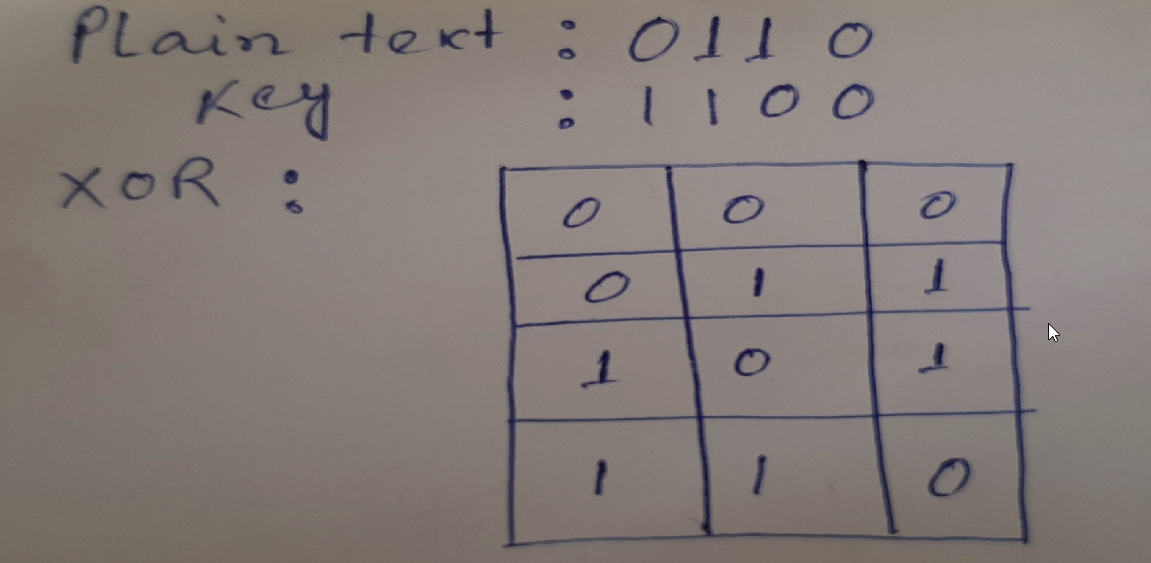 Plain text : 0 1 1 0
Key : 1 1 0 0
XOR :
0 0 0
0 1 1
1 0 1
1 1 0